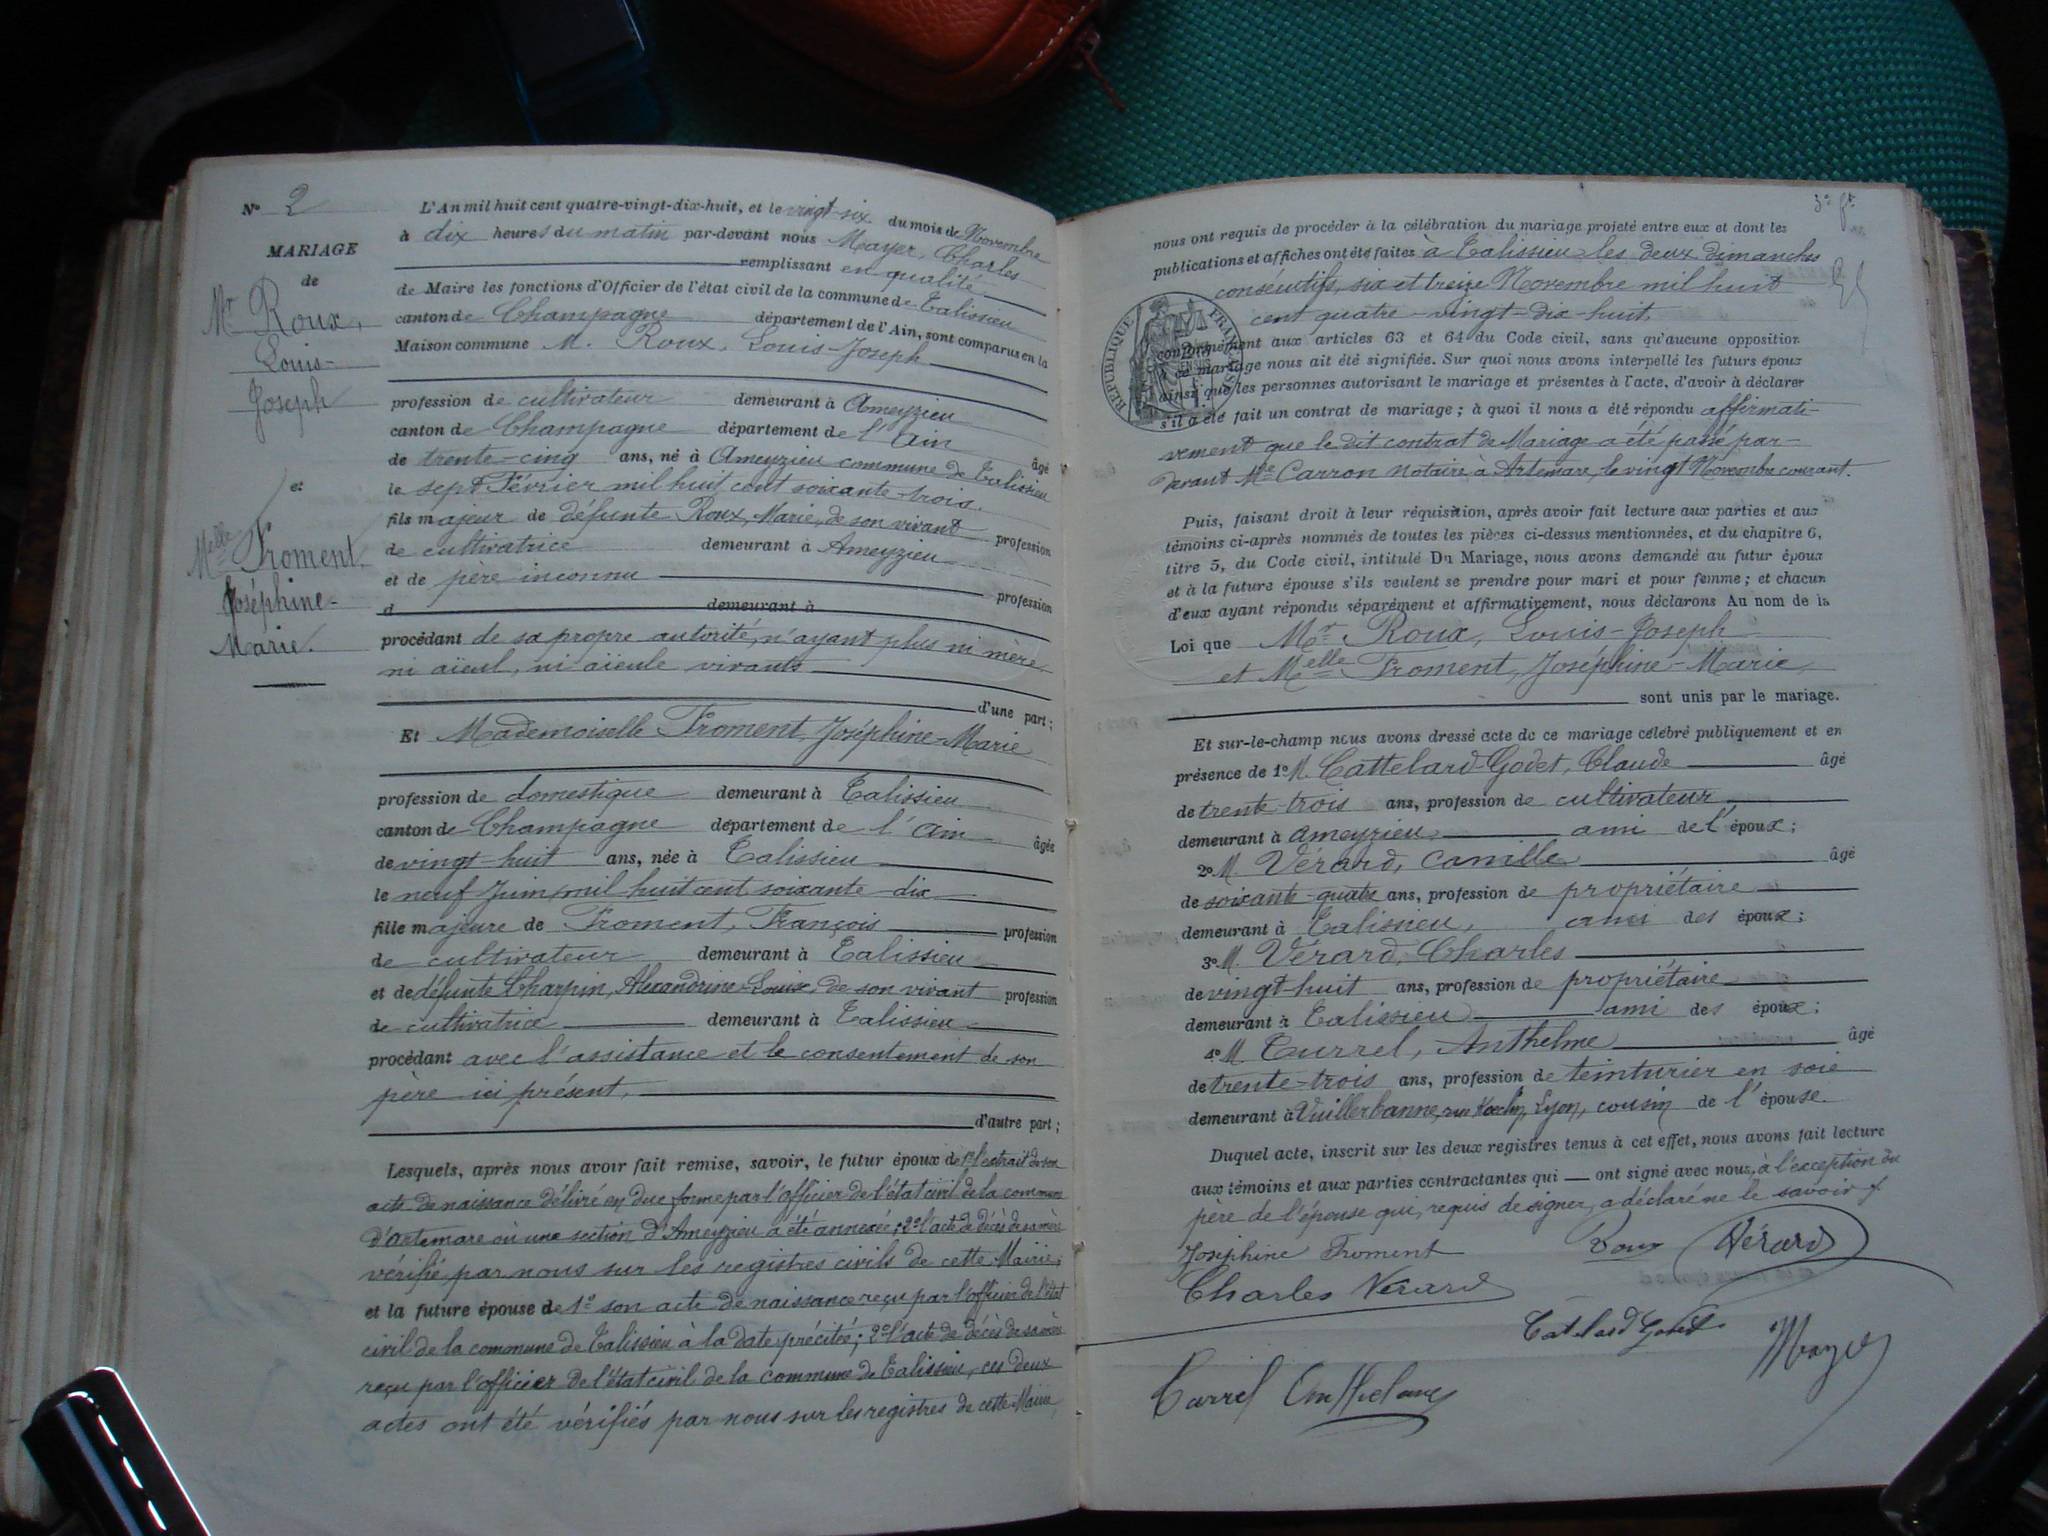 N° 2
MARIAGE
de
Mr Roux,
Louis-
Joseph
et
Melle Froment,
Joséphine-
Marie.
L'An mil huit cent quatre-vingt-dix-huit, et le vingt-six du mois de Novembre
à dix heures du matin par-devant nous Mayer, Charles
remplissant en qualité
de Maire les fonctions d'Officier de l'état civil de la commune de Talissieu
canton de Champagne département de l'Ain, sont comparus en la
Maison commune M. Roux, Louis-Joseph
profession de cultivateur demeurant à Ameyzieu
canton de Champagne département de l'Ain âgé
de trente-cinq ans, né à Ameyzieu commune de Talissieu
le sept Février mil huit cent soixante-trois.
fils majeur de défunte Roux, Marie, de son vivant profession
de cultivatrice demeurant à Ameyzieu
et de père inconnu profession
d demeurant à
procédant de sa propre autorité, n'ayant plus ni mère
ni aïeul, ni aïeule vivants
d'une part;
Et Mademoiselle Froment, Joséphine-Marie
profession de domestique demeurant à Talissieu
canton de Champagne département de l'Ain âgée
de vingt-huit ans, née à Talissieu
le neuf Juin mil huit cent soixante-dix
fille majeure de Froment, François profession
de cultivateur demeurant à Talissieu
et de défunte Charpin, Alexandrine-Louise, de son vivant profession
de cultivatrice demeurant à Talissieu
procédant avec l'assistance et le consentement de son
père ici présent,
d'autre part;
Lesquels, après nous avoir fait remise, savoir, le futur époux de 1° l'extrait de son
acte de naissance délivré en due forme par l'officier de l'état civil de la commune
d'Artemare où une section d'Ameyzieu a été annexée; 2° l'acte de décès de sa mère
vérifié par nous sur les registres civils de cette Mairie,
et la future épouse de 1° son acte de naissance reçu par l'officier de l'état
civil de la commune de Talissieu à la date précitée; 2° l'acte de décès de sa mère
reçu par l'officier de l'état civil de la commune de Talissieu, ces deux
actes ont été vérifiés par nous sur les registres de cette Mairie,
nous ont requis de procéder à la célébration du mariage projeté entre eux et dont les
publications et affiches ont été faites à Talissieu les deux dimanches
consécutifs, six et treize Novembre mil huit
cent quatre-vingt-dix-huit,
RÉPUBLIQUE FRANÇAISE
conformément aux articles 63 et 64 du Code civil, sans qu'aucune opposition
à ce mariage nous ait été signifiée. Sur quoi nous avons interpellé les futurs époux
ainsi que les personnes autorisant le mariage et présentes à l'acte, d'avoir à déclarer
s'il a été fait un contrat de mariage; à quoi il nous a été répondu affirmati-
vement que le dit contrat de Mariage a été passé par-
devant Me Carron notaire à Artemare, le vingt Novembre courant.
Puis, faisant droit à leur réquisition, après avoir fait lecture aux parties et aux
témoins ci-après nommés de toutes les pièces ci-dessus mentionnées, et du chapitre 6,
titre 5, du Code civil, intitulé Du Mariage, nous avons demandé au futur époux
et à la future épouse s'ils veulent se prendre pour mari et pour femme; et chacun
d'eux ayant répondu séparément et affirmativement, nous déclarons Au nom de la
Loi que Mr Roux, Louis-Joseph
et Melle Froment, Joséphine-Marie,
sont unis par le mariage.
Et sur-le-champ nous avons dressé acte de ce mariage célébré publiquement et en
présence de 1° M. Cattelard-Godet, Claude âgé
de trente-trois ans, profession de cultivateur
demeurant à Ameyzieu ami de l'époux;
2° M. Vérard, Camille âgé
de soixante-quatre ans, profession de propriétaire
demeurant à Talissieu, ami des époux;
3° M. Vérard, Charles
de vingt-huit ans, profession de propriétaire
demeurant à Talissieu ami des époux;
4° M. Turrel, Anthelme âgé
de trente-trois ans, profession de teinturier en soie
demeurant à Vuillerbanne, rue Kœclin, Lyon, cousin de l'épouse.
Duquel acte, inscrit sur les deux registres tenus à cet effet, nous avons fait lecture
aux témoins et aux parties contractantes qui ont signé avec nous, à l'exception du
père de l'épouse qui, requis de signer, a déclaré ne le savoir
Joséphine Froment Roux Vérard
Charles Vérard
Catelard Godet
Mayer
Turrel Anthelme